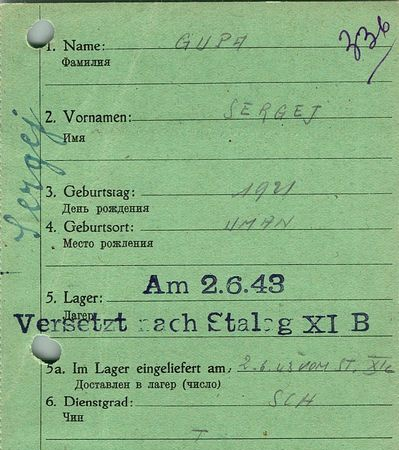 336
1. Name: GUPA
Фамилия
2. Vornamen: SERGEJ
Имя
Sergej
3. Geburtstag: 1921
День рождения
4. Geburtsort: UMAN
Место рождения
Am 2.6.43
5. Lager:
Лагерь
Versetzt nach Stalag XI B
5a. Im Lager eingeliefert am, 2.6.43 VOM ST. XI
Доставлен в лагерь (число)
6. Dienstgrad: SCH
Чин